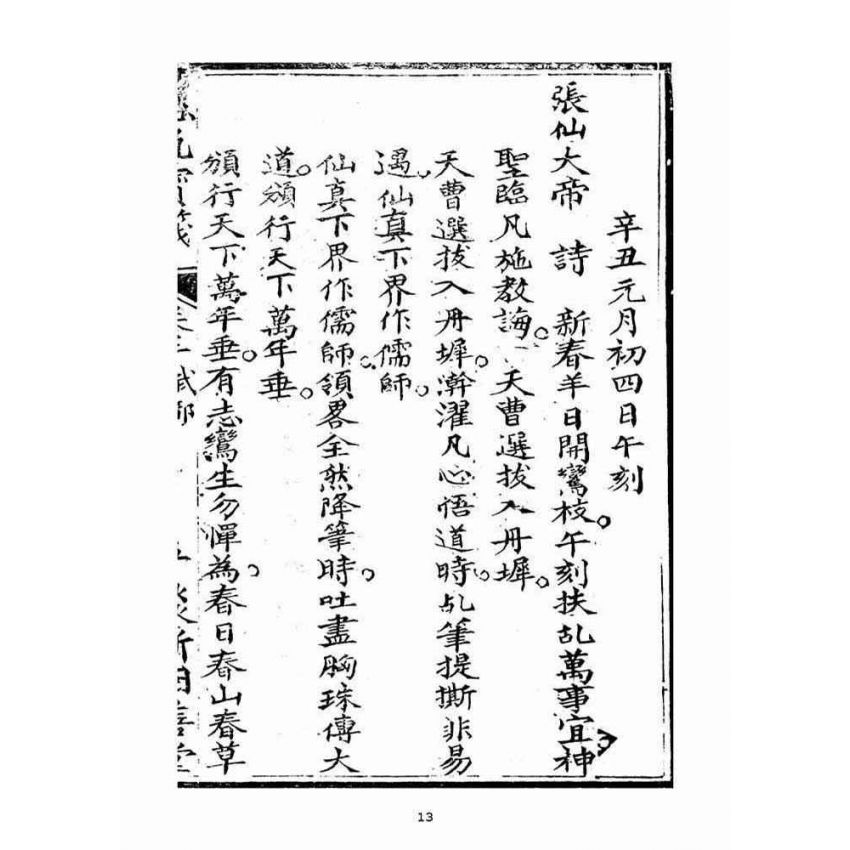 辛丑元月初四日午刻
張仙大帝 詩 新春羊日開鸞枝。午刻扶乩萬事宜神
聖臨凡施教誨。天曹選拔入丹墀。
天曹選拔入丹墀。澣濯凡心悟道時。乩筆提撕非易
遇。仙真下界作儒師。
仙真下界作儒師。領畧全然降筆時。吐盡胸珠傳大
道。頒行天下萬年垂。
頒行天下萬年垂。有志鸞生勿憚為。春日春山春草
13